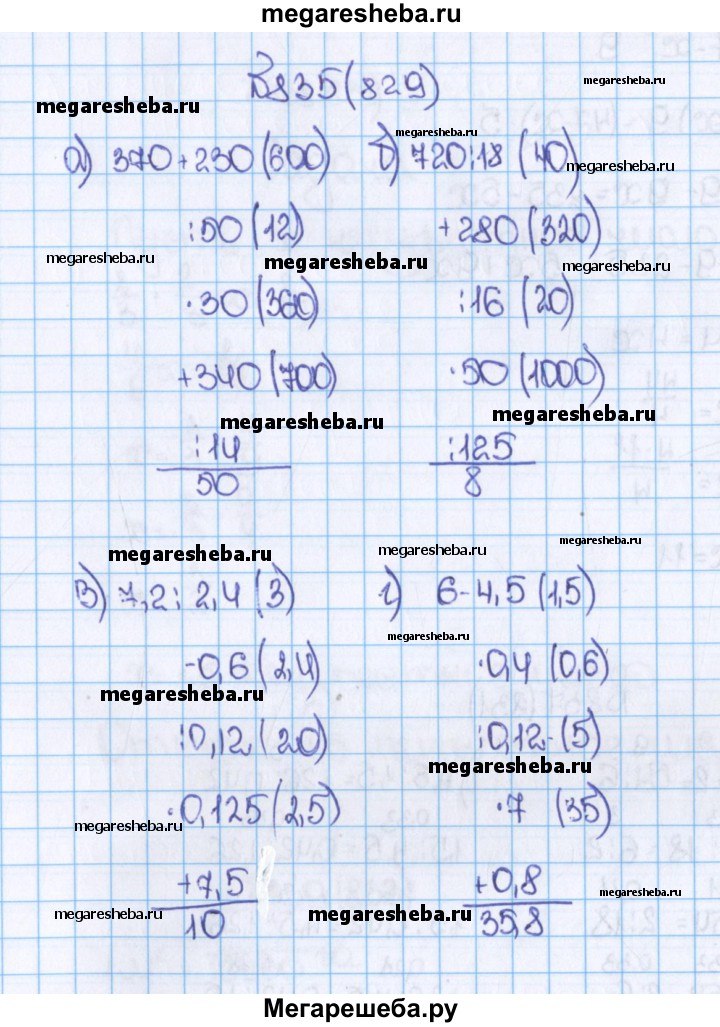 megaresheba.ru
835(829)
megaresheba.ru
megaresheba.ru
megaresheba.ru
а) 370+230(600) б) 720:18 (40)
megaresheba.ru
:50(12) +280(320)
megaresheba.ru
megaresheba.ru
megaresheba.ru
·30(360) :16 (20)
+340(700) ·50(1000)
megaresheba.ru
megaresheba.ru
megaresheba.ru
:14 :125
50 8
megaresheba.ru
megaresheba.ru
megaresheba.ru
в) 7,2:2,4(3) г) 6-4,5(1,5)
megaresheba.ru
-0,6(2,4) ·0,4(0,6)
megaresheba.ru
megaresheba.ru
:0,12(20) :0,12-(5)
megaresheba.ru
·0,125(2,5) ·7 (35)
megaresheba.ru
+7,5 +0,8
megaresheba.ru
megaresheba.ru
megaresheba.ru
10 35,8
Мегарешеба.ру